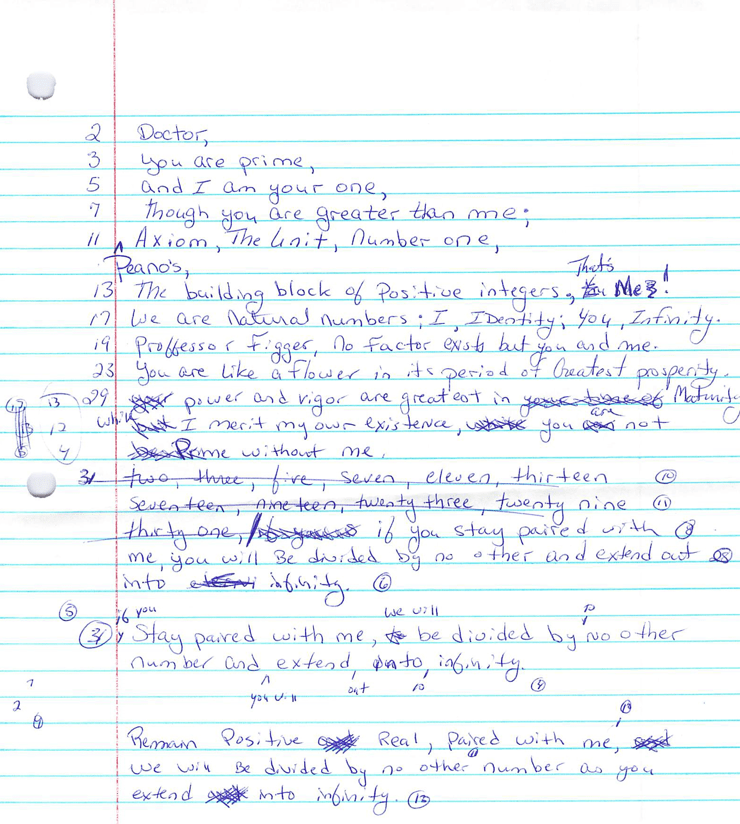 2 Doctor,
3 you are prime,
5 and I am your one,
7 though you are greater than me;
11 ^ Axiom, The Unit, Number one,
Peano's,
That's
13 The building block of Positive integers, Me!
17 We are Natural numbers; I, IDentity; you, Infinity.
19 Proffessor Figger, no factor exists but you and me.
23 You are like a flower in its period of Greatest prosperity.
13 29 power and vigor are greatest in Maturity
12 while I merit my own existence, you are not
4 Prime without me.
31 two, three, five, seven, eleven, thirteen 10
seventeen, nineteen, twenty three, twenty nine 11
thirty one, if you stay paired with 8
me, you will Be divided by no other and extend out
into infinity. 6
5 if you we will
31 Stay paired with me, be divided by no other
number and extend, onto, infinity.
you will out 10
2
Remain Positive Real, paired with me,
we will Be divided by no other number as you
extend into infinity. 12